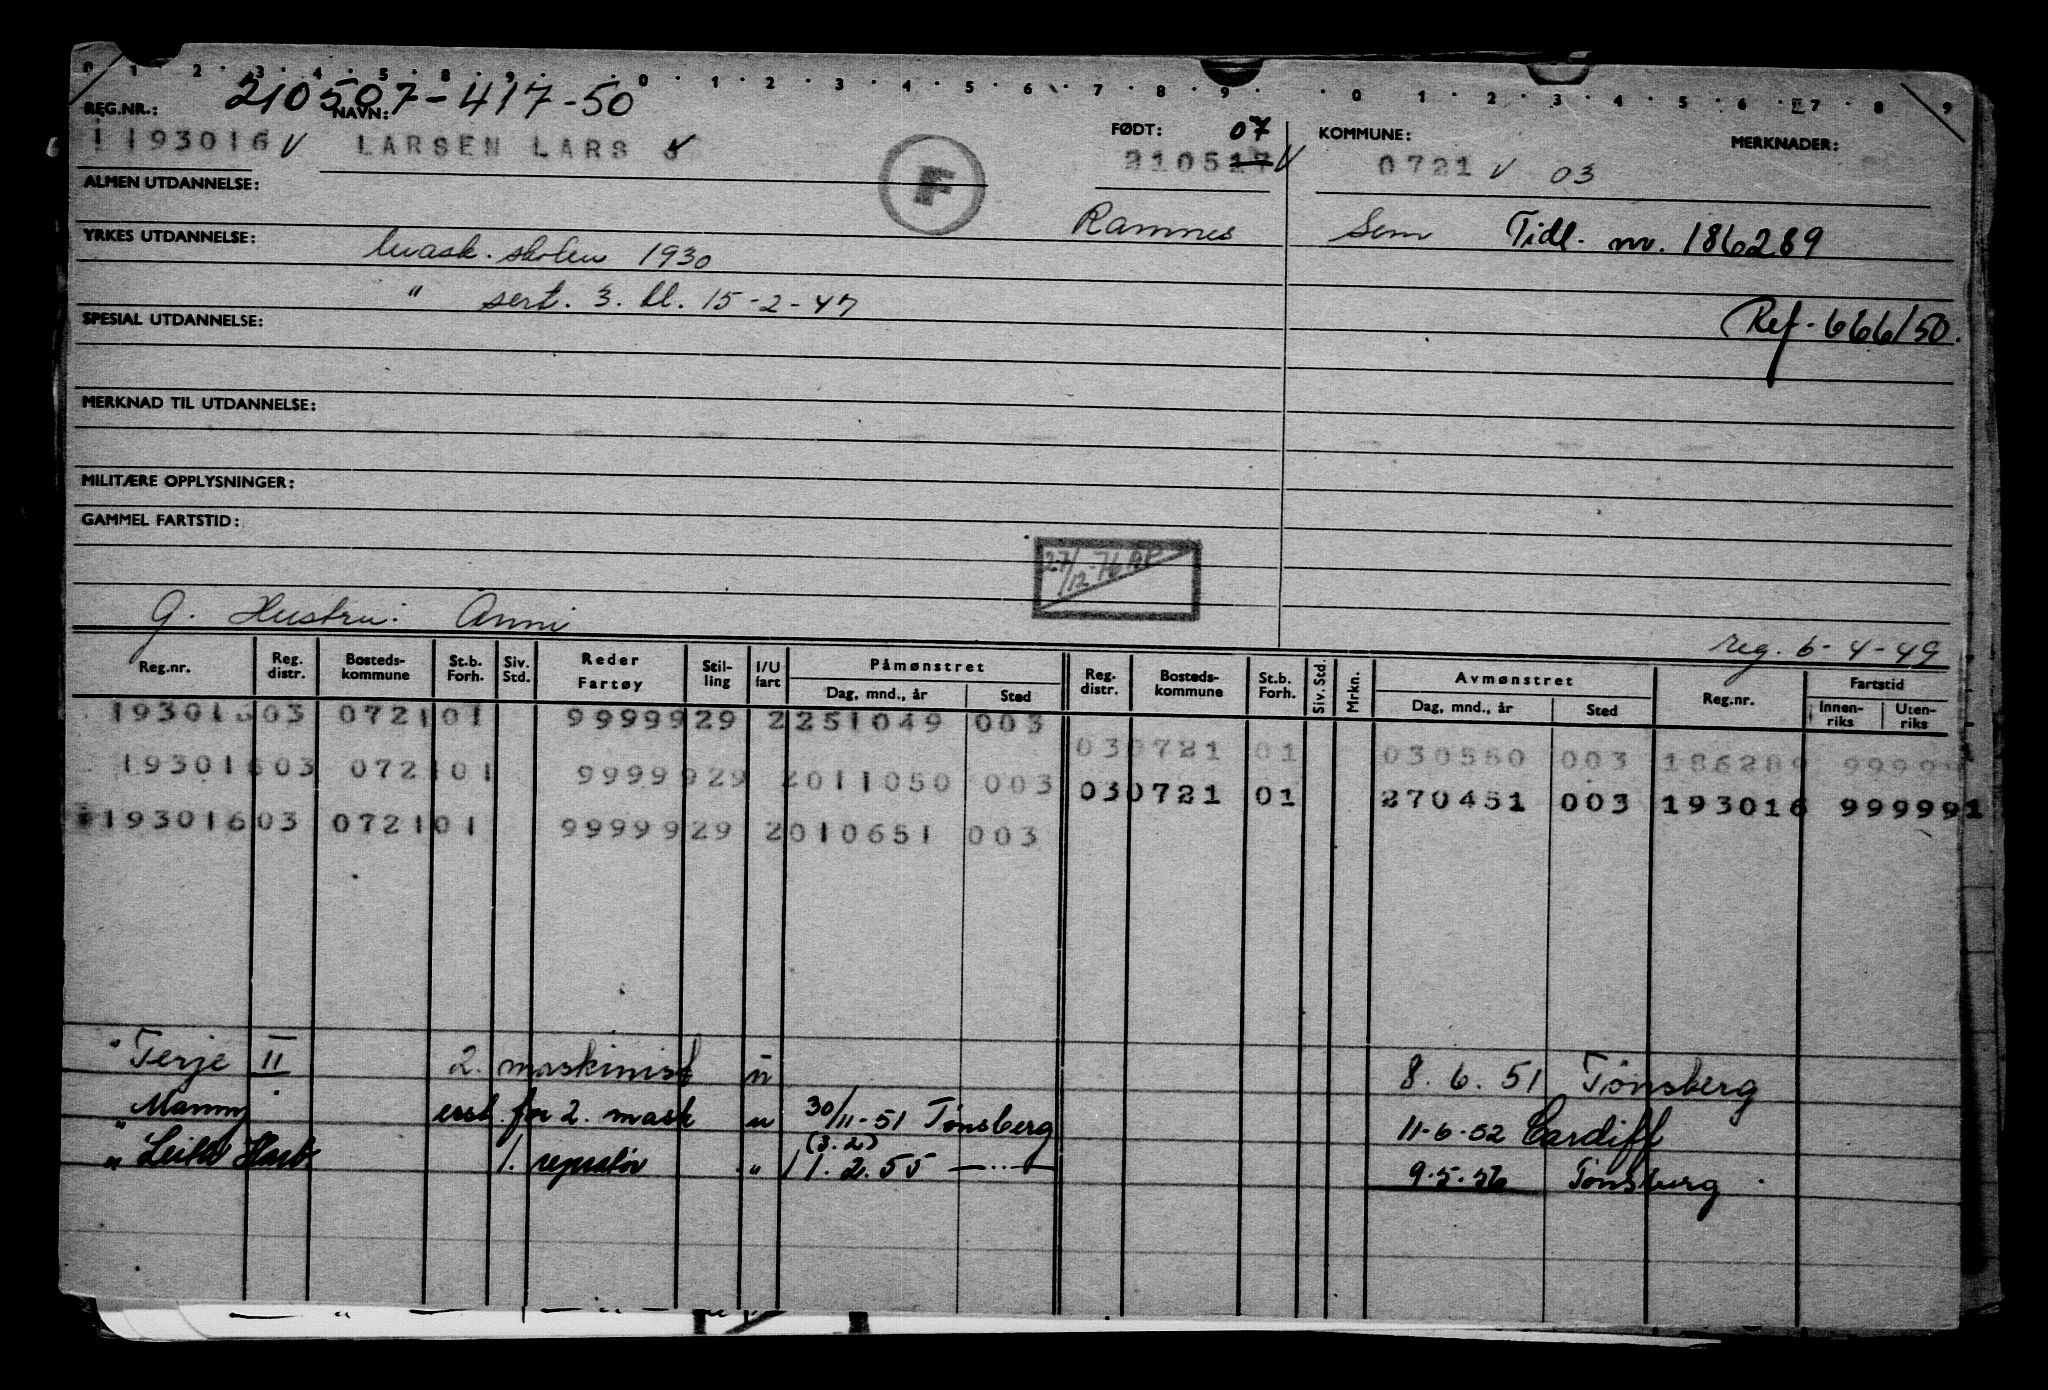 0 1 2 3 4 5 8 9 0 1 2 3 4 5 6 7 8 9 0 1 2 3 4 5 6 7 8 9
210507-417-50
REG.NR.: NAVN: FØDT: 07 KOMMUNE: MERKNADER:
1193016 V LARSEN LARS J 210517 V 0721 V 03
ALMEN UTDANNELSE: F
Ramnes Sem Tidl. nr. 186289
YRKES UTDANNELSE: mask. skolen 1930
" sert. 3. kl. 15-2-47
SPESIAL UTDANNELSE: Ref. 666/50.
MERKNAD TIL UTDANNELSE:
MILITÆRE OPPLYSNINGER:
GAMMEL FARTSTID:
27/12-76
G. Hustru: Anni
reg. 6-4-49
Reg.nr. Reg. distr. Bosteds-kommune St.b. Forh. Siv. Std. Reder Fartøy Stil-ling I/U fart Påmønstret Dag, mnd., år Sted Reg. distr. Bosteds-kommune St.b. Forh. Siv. Std. Mrkn. Avmønstret Dag, mnd., år Sted Reg.nr. Fartstid Innen-riks Uten-riks
193016 03 0721 01 99999 29 2 251049 003
030721 01 030550 003 186289 9999
193016 03 0721 01 99999 29 2 011050 003
030721 01 270451 003 193016 999991
193016 03 0721 01 99999 29 2 010651 003
" Terje II 2. maskinist u 8.6.51 Tønsberg
" erst. for 2. mask u 30/11-51 Tønsberg 11-6-52 Cardiff
(3.2)
" 1. reparatør " 11.2.55 —"— 9.5.56 Tønsberg